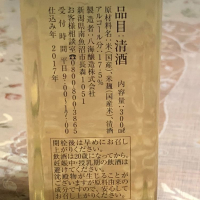 品目:清酒
内容量:300ml
原材料名:米(国産)、米麹(国産米)、清酒
アルコール分:17.5%
製造者:八海醸造株式会社
新潟県南魚沼市長森1051
お客様相談室 0800-800-3865
受付時間 平日9:00~17:00
仕込み年 2017年
開栓後は早めにお召し
上がりください。
飲酒は20歳になってから。
妊娠中・授乳期の飲酒は
お避けください。